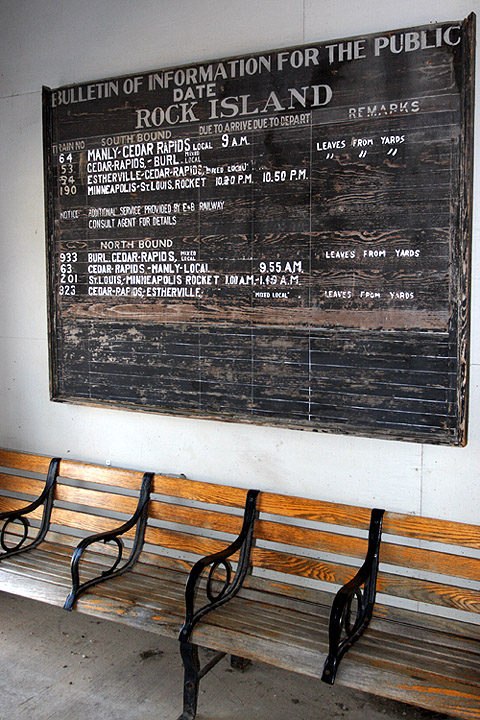 BULLETIN OF INFORMATION FOR THE PUBLIC
DATE
ROCK ISLAND
TRAIN NO SOUTH BOUND DUE TO ARRIVE DUE TO DEPART REMARKS
64 MANLY-CEDAR RAPIDS LOCAL 9 A.M. LEAVES FROM YARDS
53 CEDAR-RAPIDS,-BURL. MIXED LOCAL " " "
94 ESTHERVILLE-CEDAR-RAPIDS, MIXED LOCAL
190 MINNEAPOLIS-ST.LOUIS, ROCKET 10.20 P.M. 10.50 P.M.
NOTICE: ADDITIONAL SERVICE PROVIDED BY E&B RAILWAY
CONSULT AGENT FOR DETAILS
NORTH BOUND
933 BURL. CEDAR-RAPIDS, MIXED LOCAL LEAVES FROM YARDS
63 CEDAR-RAPIDS,-MANLY-LOCAL 9.55 A.M.
201 ST.LOUIS,-MINNEAPOLIS ROCKET
323 CEDAR-RAPIDS-ESTHERVILLE. "MIXED LOCAL" LEAVES FROM YARDS